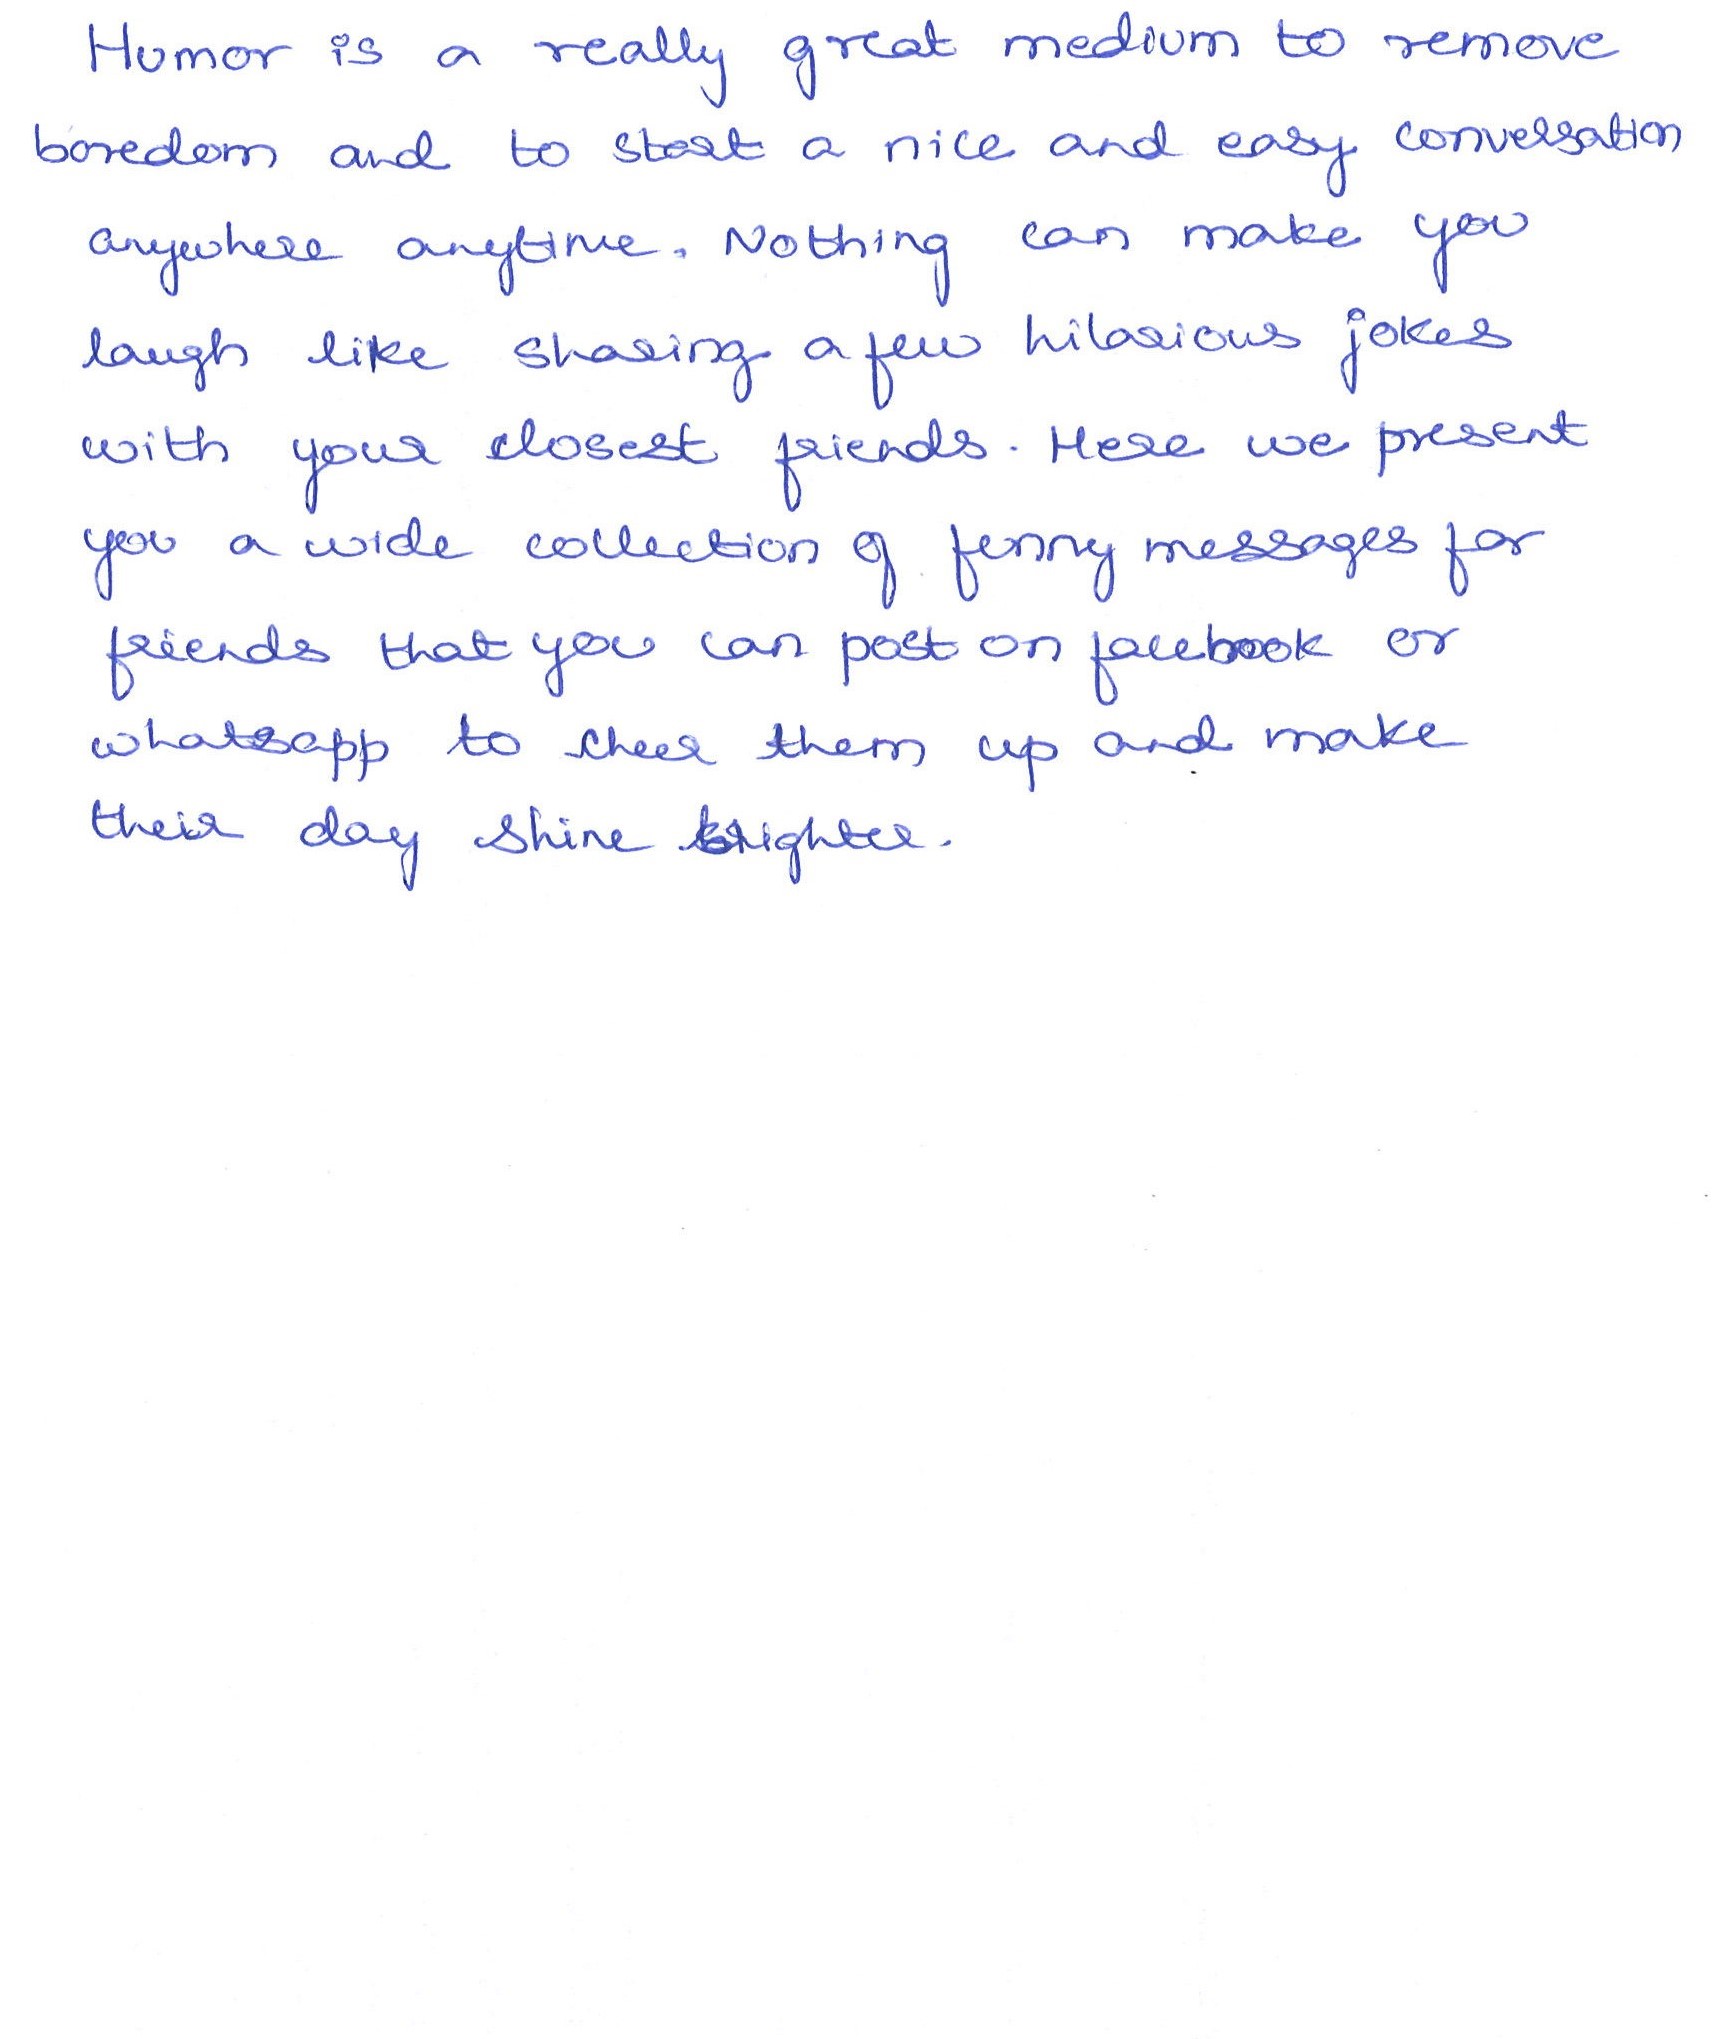 Humor is a really great medium to remove
boredom and to start a nice and easy conversation
anywhere anytime. Nothing can make you
laugh like sharing a few hilarious jokes
with your closest friends. Here we present
you a wide collection of funny messages for
friends that you can post on facebook or
whatsapp to cheer them up and make
their day shine brighter.